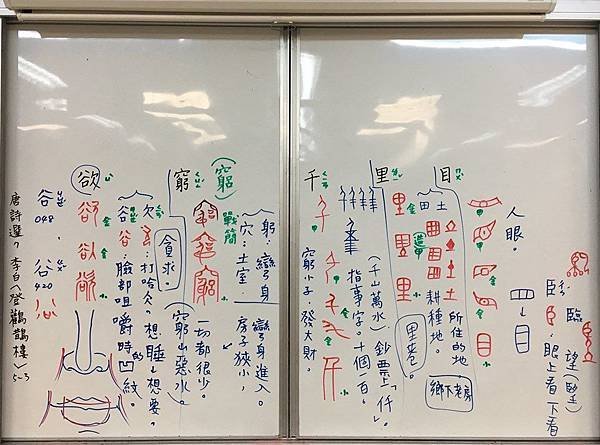 目
人眼。
臥
臨
望(朢)
眼,上看一下看
里
田 土
所住的地
耕種地。
里巷。
鄉下老房
千
(千山萬水)鈔票上「仟」
指事字。十個百。
窮小子,發大財。
窮
(竆)
戰簡
躬:彎身
穴:土室.
彎身進入。
房子狹小,
一切都很少。
(窮山惡水。)
貪求。
欲
欠
:打哈欠。想睡→想要。
谷
:臉部咀嚼時的凹紋。
谷 048
谷 420
唐詩選7 李白〈登鸛鵲樓〉5-3